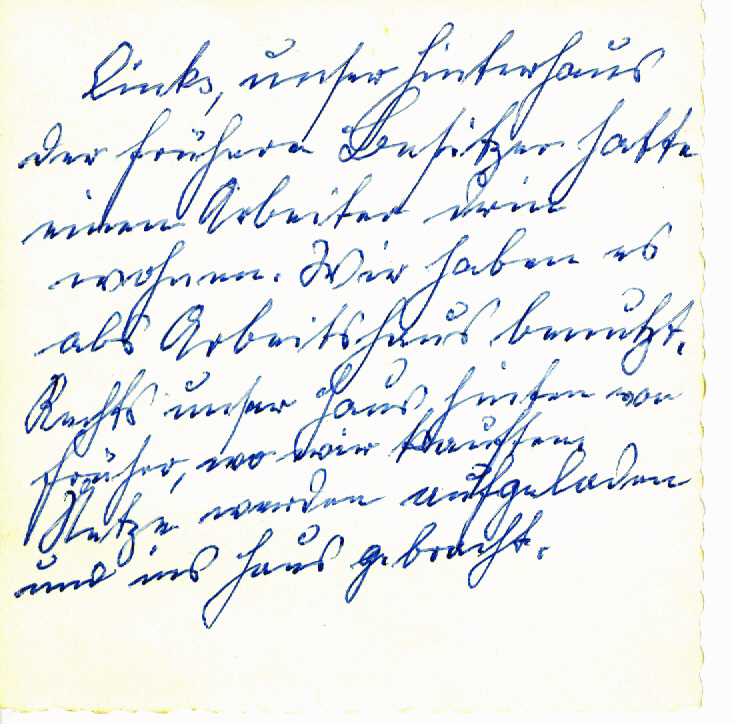 Links, unser Hinterhaus
der frühere Besitzer hatte
einen Arbeiter drin
wohnen. Wir haben es
als Arbeitshaus benutzt.
Rechts unser Haus hinten von
früher, wo wir kauften.
Netze werden aufgeladen
und ins Haus gebracht.